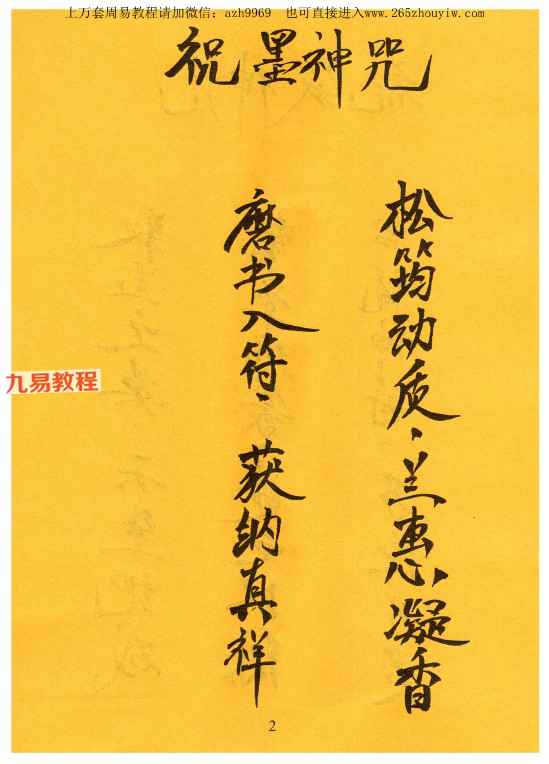 上万套周易教程请加微信：azh9969　也可直接进入www.265zhouyiw.com
祝墨神咒
松筠动质、兰惠、凝香
磨书入符、获纳真祥
九易教程
2